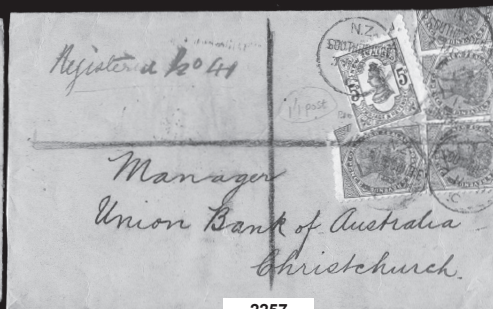 Registered No 41
N.Z.
5
5
Manager
Union Bank of Australia
Christchurch.
2257